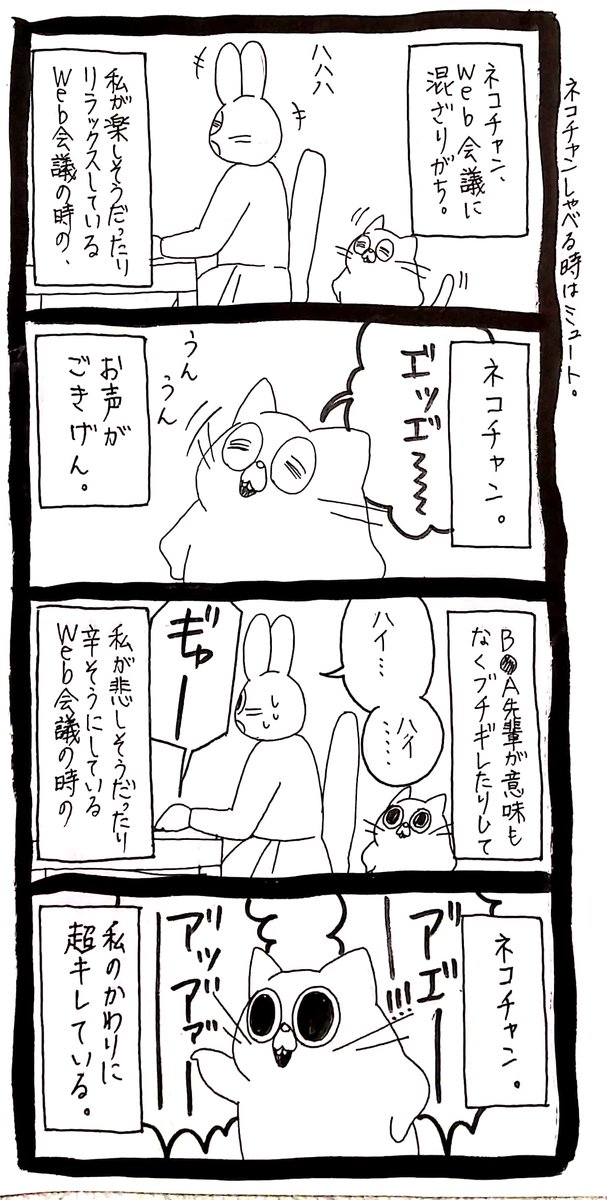 ネコチャンしゃべる時はミュート。
ネコチャン、
Web会議に
混ざりがち。
ハハハ
私が楽しそうだったり
リラックスしている
Web会議の時の、
ネコチャン。
エッエ〜〜
うん
うん
お声が
ごきげん。
B A先輩が意味も
なくブチギレたりして
ハイ…
ハイ……
ギャーー
私が悲しそうだったり
辛そうにしている
Web会議の時の
ネコチャン。
アエ゙ーー!!!
ア゙ッア゙ァーー
私のかわりに
超キレている。